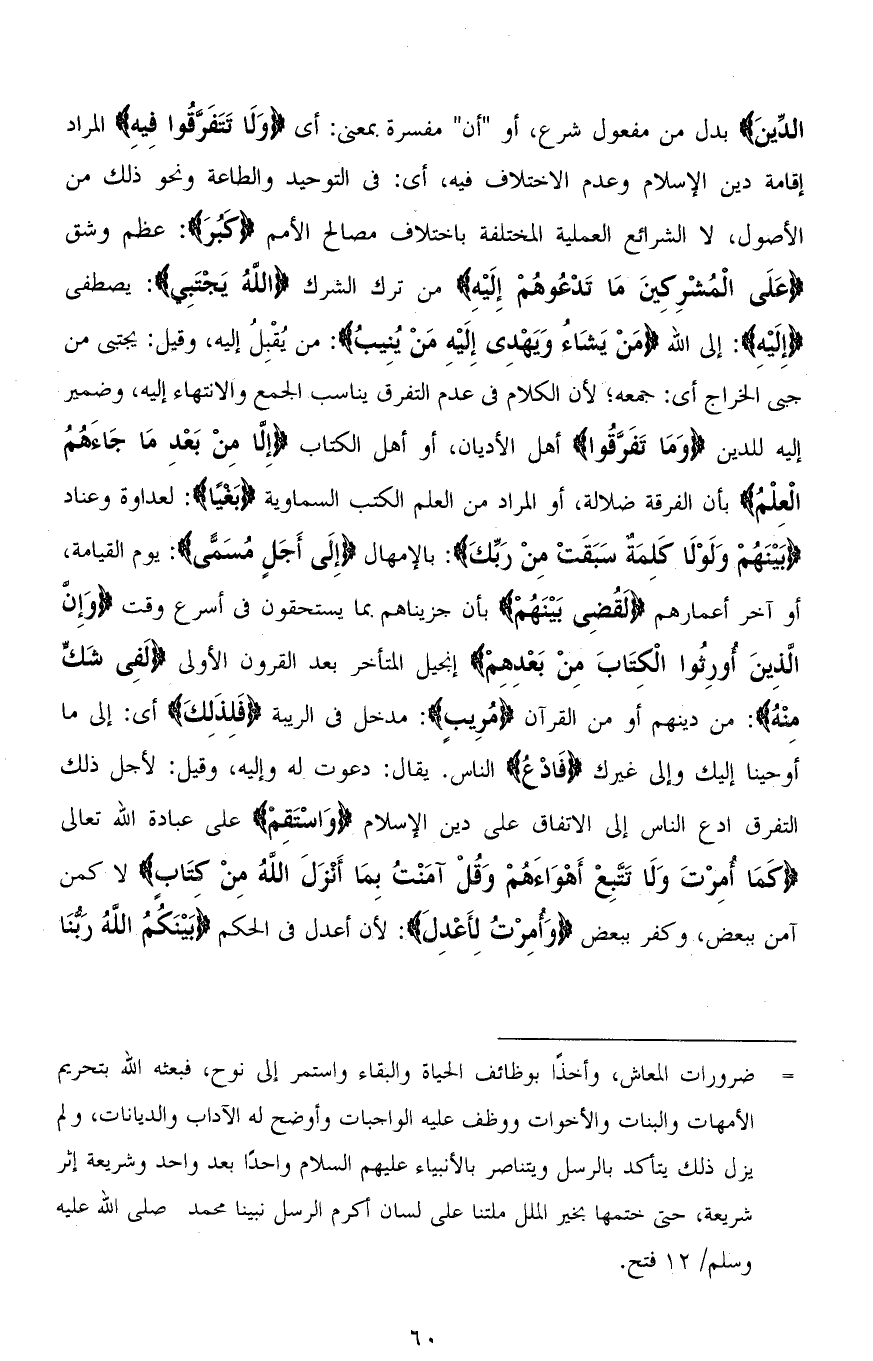 الدِّينَ﴾ بدل من مفعول شرع، أو "أن" مفسرة بمعنى: أى ﴿وَلَا تَتَفَرَّقُوا فِيهِ﴾ المراد
إقامة دين الإسلام وعدم الاختلاف فيه، أى: فى التوحيد والطاعة ونحو ذلك من
الأصول، لا الشرائع العملية المختلفة باختلاف مصالح الأمم ﴿كَبُرَ﴾: عظم وشق
﴿عَلَى الْمُشْرِكِينَ مَا تَدْعُوهُمْ إِلَيْهِ﴾ من ترك الشرك ﴿اللَّهُ يَجْتَبِي﴾: يصطفى
﴿إِلَيْهِ﴾: إلى الله ﴿مَنْ يَشَاءُ وَيَهْدِى إِلَيْهِ مَنْ يُنِيبُ﴾: من يُقْبِلُ إليه، وقيل: يجتبى من
جبى الخراج أى: جمعه؛ لأن الكلام فى عدم التفرق يناسب الجمع والانتهاء إليه، وضمير
إليه للدين ﴿وَمَا تَفَرَّقُوا﴾ أهل الأديان، أو أهل الكتاب ﴿إِلَّا مِنْ بَعْدِ مَا جَاءَهُمُ
الْعِلْمُ﴾ بأن الفرقة ضلالة، أو المراد من العلم الكتب السماوية ﴿بَغْيًا﴾: لعداوة وعناد
﴿بَيْنَهُمْ وَلَوْلَا كَلِمَةٌ سَبَقَتْ مِنْ رَبِّكَ﴾: بالإمهال ﴿إِلَى أَجَلٍ مُسَمًّى﴾: يوم القيامة،
أو آخر أعمارهم ﴿لَقُضِى بَيْنَهُمْ﴾ بأن جزيناهم بما يستحقون فى أسرع وقت ﴿وَإِنَّ
الَّذِينَ أُورِثُوا الْكِتَابَ مِنْ بَعْدِهِمْ﴾ إنجيل المتأخر بعد القرون الأولى ﴿لَفِى شَكٍّ
مِنْهُ﴾: من دينهم أو من القرآن ﴿مُرِيبٍ﴾: مدخل فى الريبة ﴿فَلِذَلِكَ﴾ أى: إلى ما
أوحينا إليك وإلى غيرك ﴿فَادْعُ﴾ الناس. يقال: دعوت له وإليه، وقيل: لأجل ذلك
التفرق ادع الناس إلى الاتفاق على دين الإسلام ﴿وَاسْتَقِمْ﴾ على عبادة الله تعالى
﴿كَمَا أُمِرْتَ وَلَا تَتَّبِعْ أَهْوَاءَهُمْ وَقُلْ آمَنْتُ بِمَا أَنْزَلَ اللَّهُ مِنْ كِتَابٍ﴾ لا كمن
آمن ببعض، وكفر ببعض ﴿وَأُمِرْتُ لِأَعْدِلَ﴾: لأن أعدل فى الحكم ﴿بَيْنَكُمُ اللَّهُ رَبُّنَا
= ضرورات المعاش، وأخذًا بوظائف الحياة والبقاء واستمر إلى نوح، فبعثه الله بتحريم
الأمهات والبنات والأخوات ووظف عليه الواجبات وأوضح له الآداب والديانات، ولم
يزل ذلك يتأكد بالرسل ويتناصر بالأنبياء عليهم السلام واحدًا بعد واحد وشريعة إثر
شريعة، حتى ختمها بخير الملل ملتنا على لسان أكرم الرسل نبينا محمد صلى الله عليه
وسلم/ ١٢ فتح.
٦٠